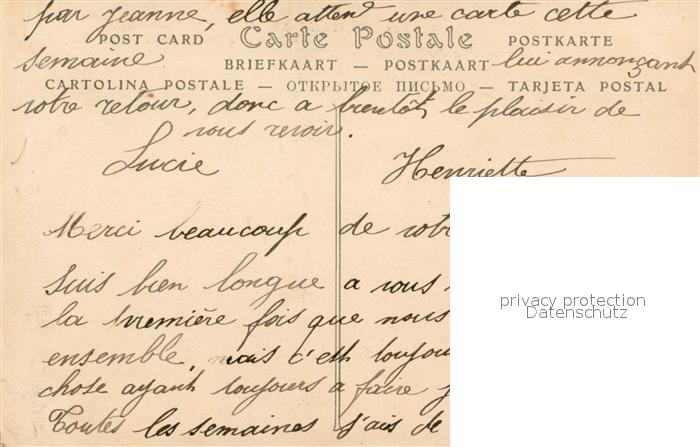 par jeanne, elle attend une carte cette
POST CARD Carte Postale POSTKARTE
semaine BRIEFKAART — POSTKAART lui annonçant
CARTOLINA POSTALE — ОТКРЫТОЕ ПИСЬМО — TARJETA POSTAL
votre retour, donc a bientôt le plaisir de
vous revoir.
Lucie Henriette
Merci beaucoup de votr
suis bien longue a vous
la première fois que nous
ensemble, mais c'est toujou
chose ayant toujours a faire
Toutes les semaines j'ais de
privacy protection
Datenschutz